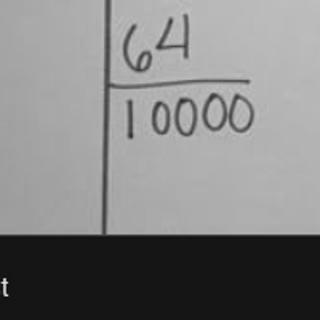 64
10000
t